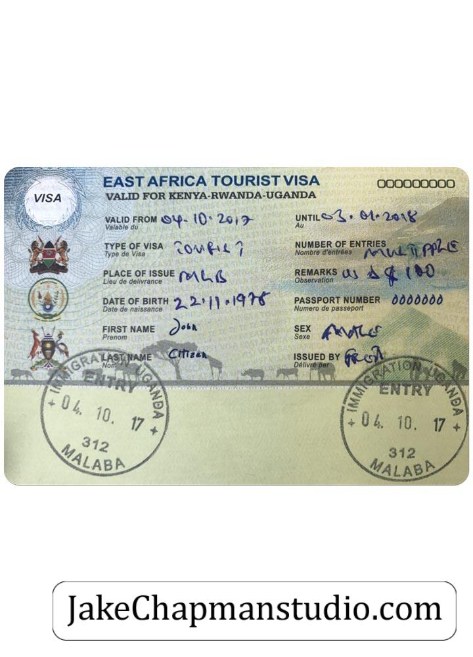 EAST AFRICA TOURIST VISA
VISA
VALID FOR KENYA-RWANDA-UGANDA
OOOOOOOOO
VALID FROM 04.10.2017
Valable du
UNTIL 03.01.2018
Au
TYPE OF VISA TOURIST
Type de Visa
NUMBER OF ENTRIES MULTIPLE
Nombre d'entrées
PLACE OF ISSUE MLB
Lieu de delivrance
REMARKS US $ 100
Observation
DATE OF BIRTH 22.11.1978
Date de naissance
PASSPORT NUMBER 0000000
Numero de passeport
FIRST NAME John
Prenom
SEX MALE
Sexe
LAST NAME Citizen
Nom
ISSUED BY
Délivré par
IMMIGRATION UGANDA
ENTRY
04. 10. 17
312
MALABA
IMMIGRATION UGANDA
ENTRY
04. 10. 17
312
MALABA
JakeChapmanstudio.com